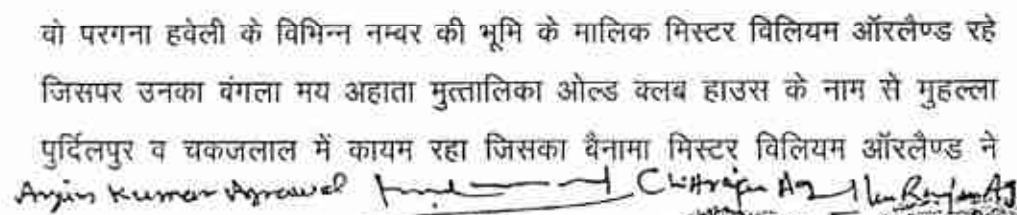 वो परगना हवेली के विभिन्न नम्बर की भूमि के मालिक मिस्टर विलियम ऑरलैण्ड रहे
जिसपर उनका बंगला मय अहाता मुत्तालिका ओल्ड क्लब हाउस के नाम से मुहल्ला
पुर्दिलपुर व चकजलाल में कायम रहा जिसका बैनामा मिस्टर विलियम ऑरलैण्ड ने
Kumar Agrawal